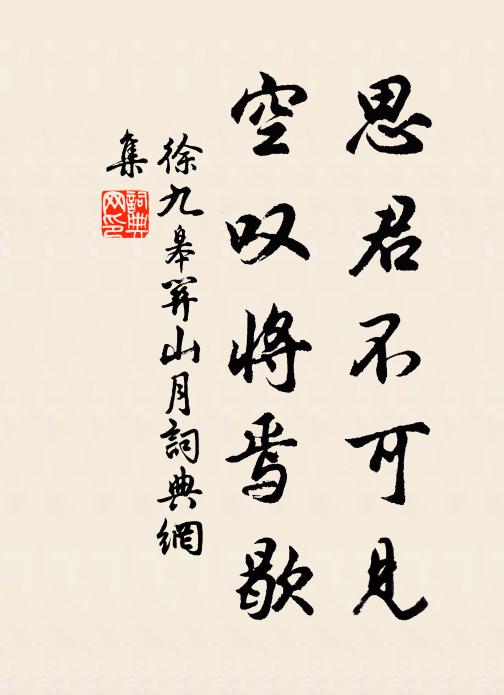 思君不可见
空叹将焉歇
徐九皋關山月詞典網
集
詞典網印